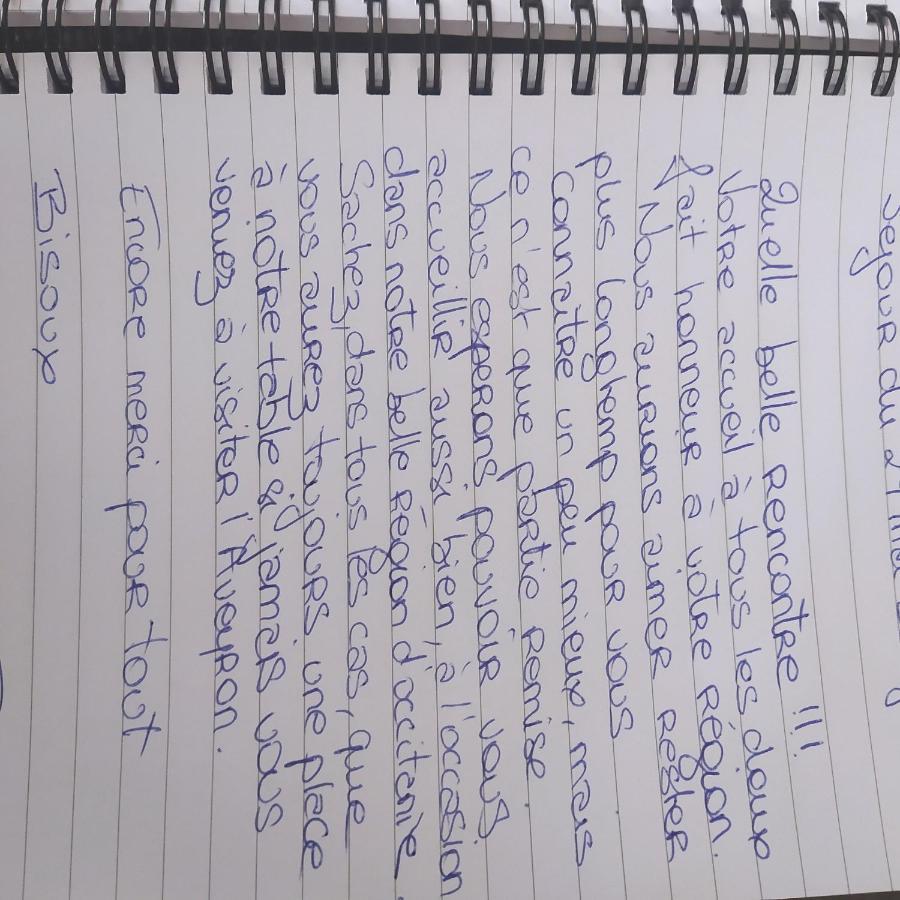 séjour du 21 mai
Quelle belle rencontre !!!
Votre accueil à tous les deux
fait honneur à votre région.
Nous aurions aimer rester
plus longtemp pour vous
connaitre un peu mieux, mais
ce n'est que partie remise.
Nous esperons pouvoir vous
accueillir aussi bien, à l'occasion
dans notre belle région d'occitanie.
Sachez, dans tous les cas, que
vous aurez toujours une place
à notre table si jamais vous
venez à visiter l'Aveyron.
Encore merci pour tout
Bisoux